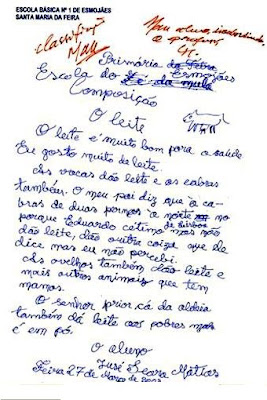 ESCOLA BÁSICA Nº 1 DE ESMOJÃES
SANTA MARIA DA FEIRA
Meu aluno
o
Primária da Feira
Escola do Zé da mula Esmojães
Composição
O leite
O leite é muito bom para a saúde
Eu gosto muito de leite.
As vacas dão leite e as cabras
também. O meu pai diz que à ca-
bras de duas pernas à noite no
porque Eduardo cetimo de lisboa mas não
dão leite, dão outra coiza que ele
dice mas eu não percebi.
As ovelhas também dão leite e
mais outros animais que tem
mamas.
O senhor prior cá da aldeia
também dá leite aos pobres mas
é em pó.
O aluno
José Seara
Feira 27 de Março de 2003